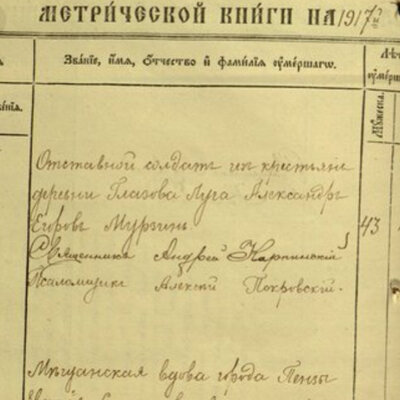 МЕТРИ́ЧЕСКОЙ КНИ́ГИ НА 1917
Зва́нїе, и́мѧ, ѻ́тчество и҆ фами́лїѧ ᲂу҆ме́ршагѡ.
ᲂу҆ме́рша
Отставной солдатъ изъ крестьянъ
деревни Глазова Луга Александръ
Егоровъ Мурзинъ. 43
Священникъ Андрей Карпинскій
Псаломщикъ Алексій Покровскій.
Мѣщанская вдова города Пензы